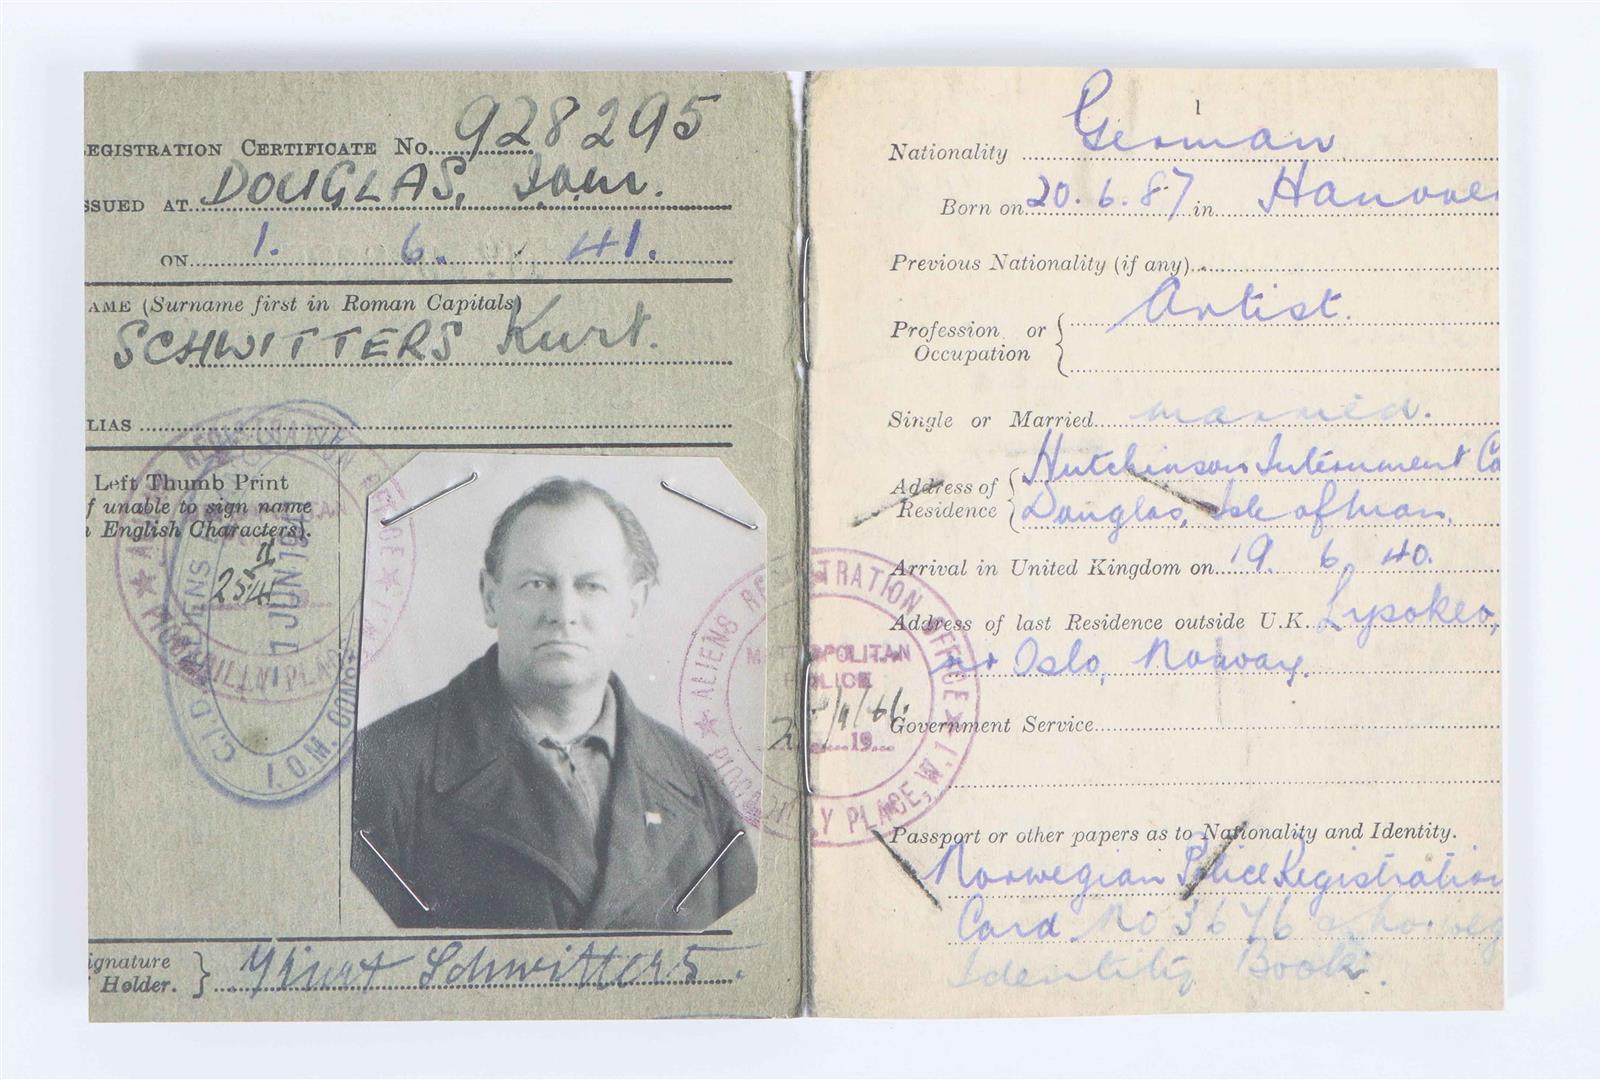 EGISTRATION CERTIFICATE No. 928295
SSUED AT DOUGLAS, Iom.
ON 1. 6. 41.
AME (Surname first in Roman Capitals)
SCHWITTERS Kurt.
LIAS
Left Thumb Print
f unable to sign name
n English Characters).
ALIENS REGISTRATION OFFICE
PICCADILLY PLACE, W.1
C.I.D.
I.O.M. CONS
1 JUN 1941
ignature
Holder. } Kurt Schwitters.
ALIENS REGISTRATION OFFICE
METROPOLITAN
POLICE
19
PICCADILLY PLACE, W.1
1
Nationality German
Born on 20.6.87 in Hanover
Previous Nationality (if any)
Profession or
Occupation { Artist.
Single or Married married.
Address of
Residence { Hutchinson Internment Ca
Douglas, Isle of Man.
Arrival in United Kingdom on 19. 6. 40.
Address of last Residence outside U.K. Lysoker,
nr Oslo, Norway.
Government Service
Passport or other papers as to Nationality and Identity.
Norwegian Police Registration
Card No 3676 & Norweg
Identity Book.